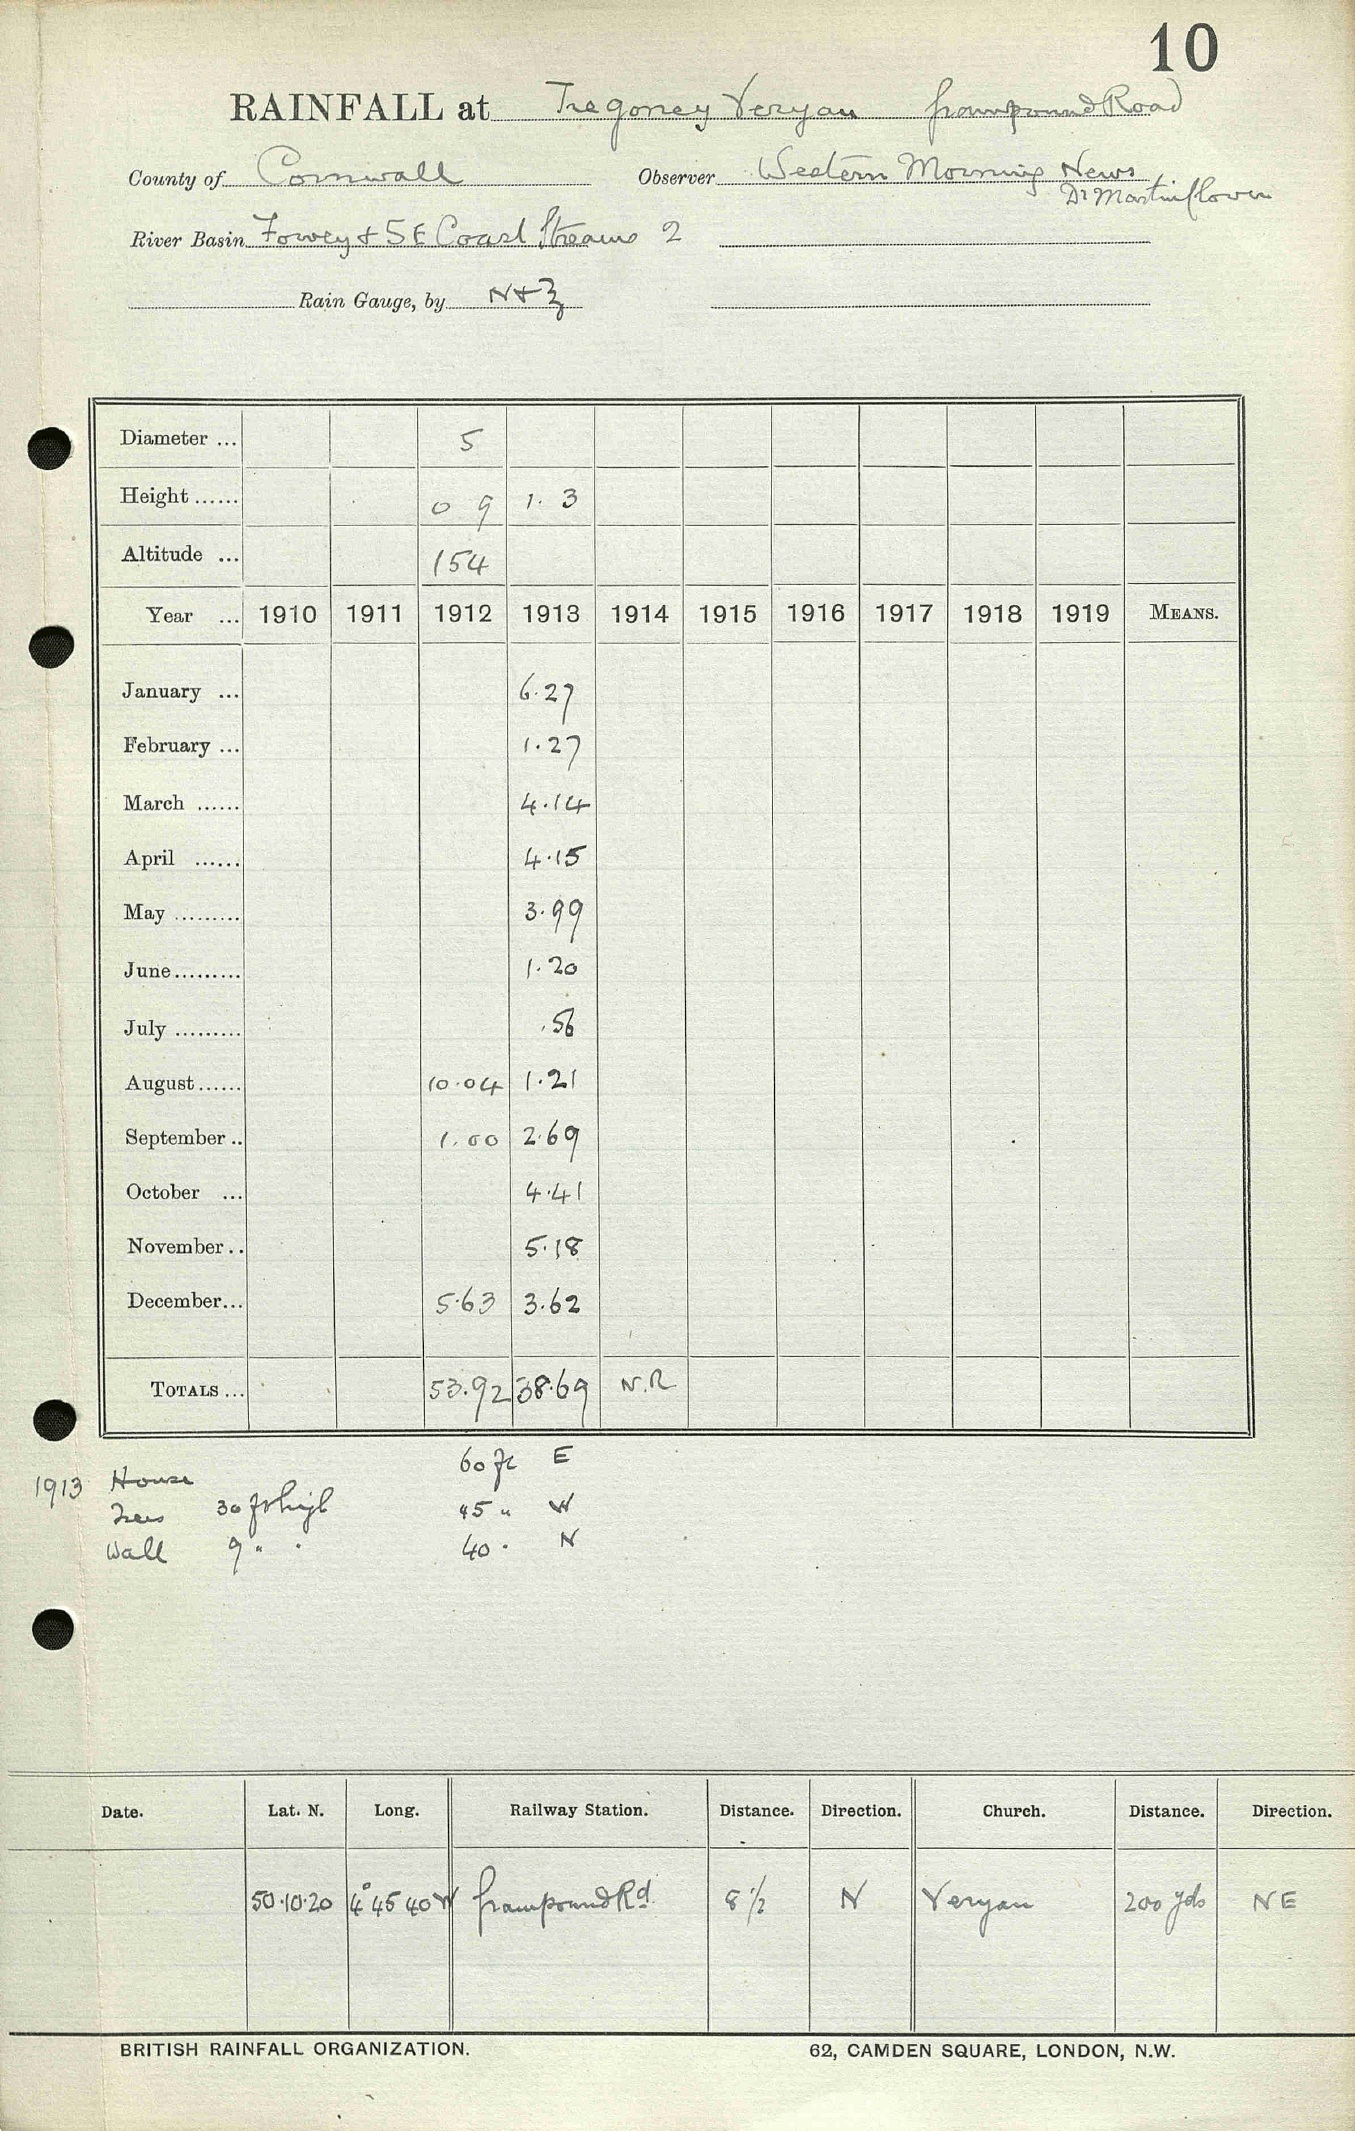 10
RAINFALL at Tregoney Veryan Grampound Road
County of Cornwall Observer Western Morning News
Dr Martin
River Basin Fowey & SE Coast Streams 2
Rain Gauge, by N & Z
Diameter ... 5
Height ...... 0 9 1. 3
Altitude ... 154
Year ... 1910 1911 1912 1913 1914 1915 1916 1917 1918 1919 MEANS.
January ... 6.27
February ... 1.27
March ...... 4.14
April ...... 4.15
May ......... 3.99
June ......... 1.20
July ......... .56
August ...... 10.04 1.21
September .. 1.00 2.69
October ... 4.41
November .. 5.18
December ... 5.63 3.62
TOTALS ... 53.92 38.69 N.R
1913 House 60 ft E
Trees 30 ft high 45 " W
Wall 9 " " 40 " N
Date. Lat. N. Long. Railway Station. Distance. Direction. Church. Distance. Direction.
50.10.20 4° 45 40 W Grampound Rd. 8 1/2 N Veryan 200 yds NE
BRITISH RAINFALL ORGANIZATION. 62, CAMDEN SQUARE, LONDON, N.W.